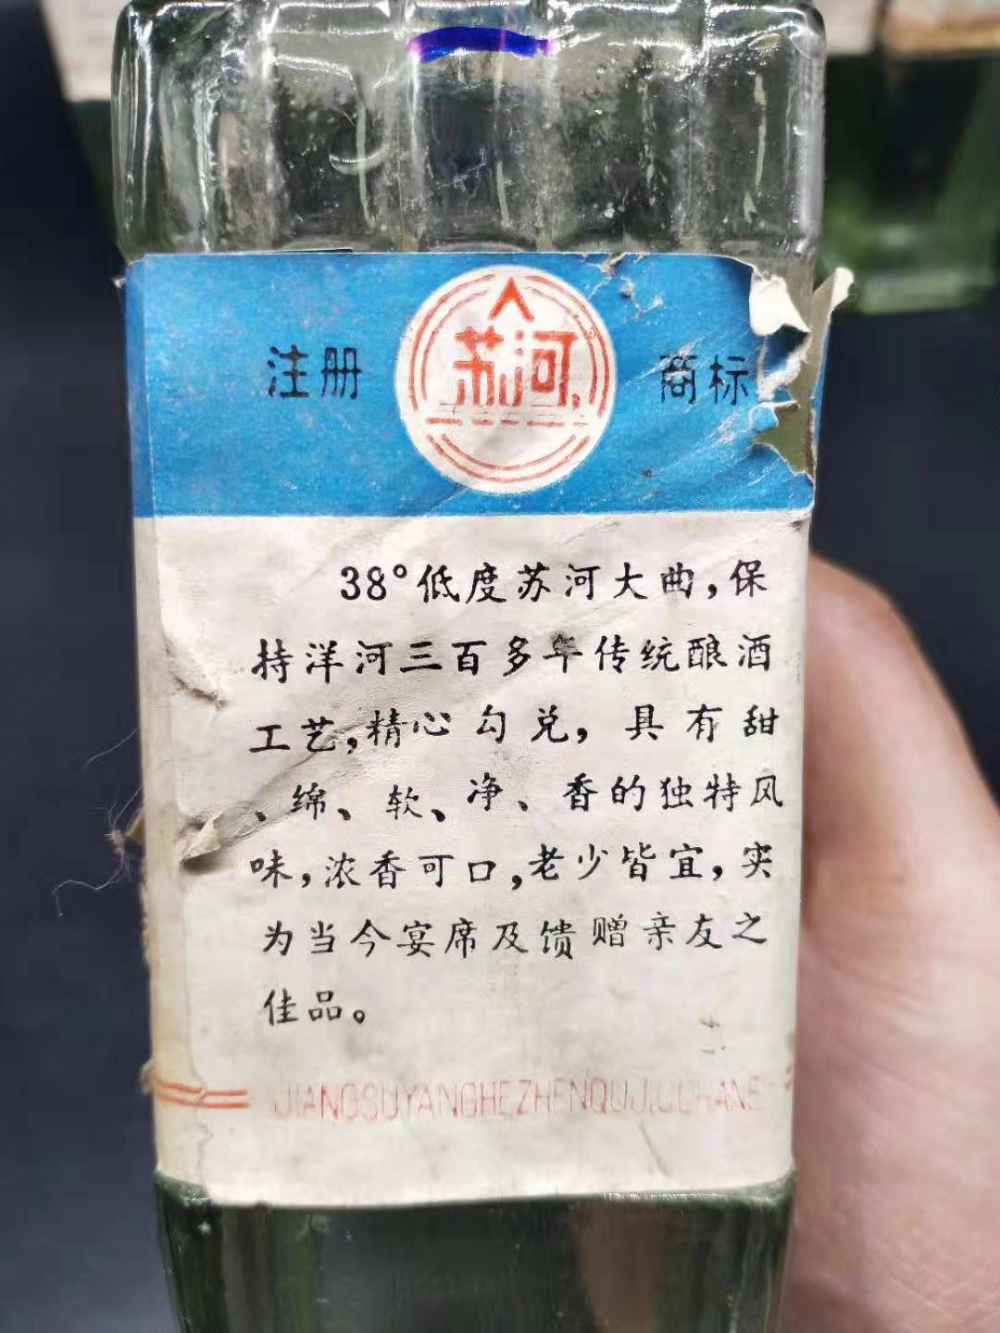 注册 苏河 商标
38°低度苏河大曲,保
持洋河三百多年传统酿酒
工艺,精心勾兑,具有甜
、绵、软、净、香的独特风
味,浓香可口,老少皆宜,实
为当今宴席及馈赠亲友之
佳品。
JIANGSUYANGHEZHENQUJIUCHANE